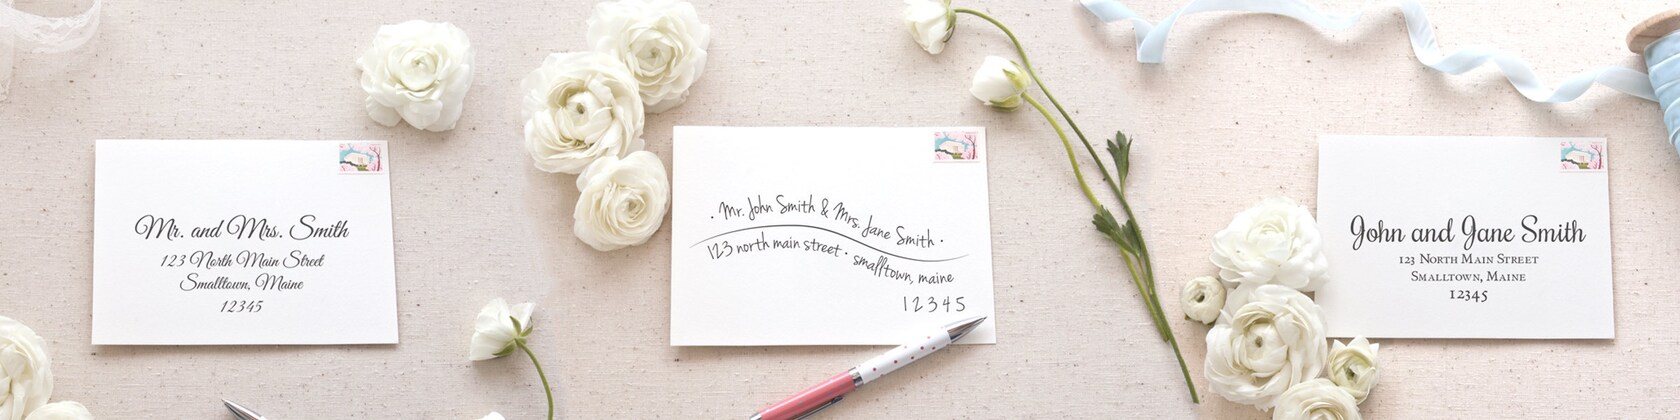 Mr. and Mrs. Smith
123 North Main Street
Smalltown, Maine
12345
· Mr. John Smith & Mrs. Jane Smith ·
123 north main street · smalltown, maine
12345
John and Jane Smith
123 North Main Street
Smalltown, Maine
12345